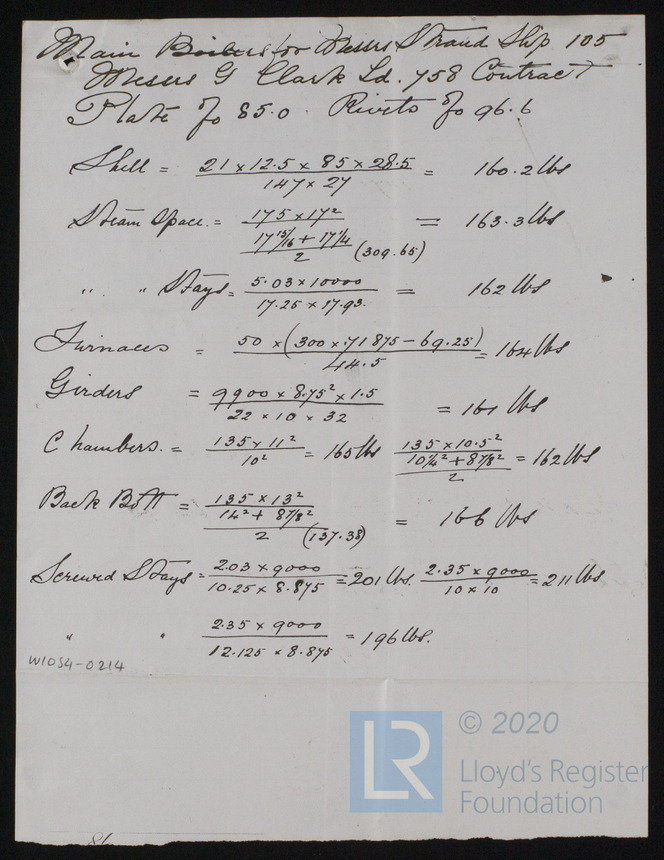 Main Boilers for Messrs Strand Slip 105
Messrs G Clark Ld. 758 Contract
Plate % 85.0 . Rivets % 96.6
Shell = 21 x 12.5 x 85 x 28.5 / 147 x 27 = 160.2 lbs
Steam Space. = 175 x 17² / 17 15/16 + 17 1/4 / 2 (309.65) = 163.3 lbs
" " Stays = 5.03 x 10000 / 17.25 x 17.93 = 162 lbs
Furnaces = 50 x (300 x .71875 - 69.25) / 44.5 = 164 lbs
Girders = 9900 x 8.75² x 1.5 / 22 x 10 x 32 = 161 lbs
Chambers. = 135 x 11² / 10² = 165 lbs 135 x 10.5² / 10 1/4² + 8 7/8² / 2 = 162 lbs
Back Bott = 135 x 13² / 14² + 8 7/8² / 2 (137.38) = 166 lbs
Screwed Stays = 2.03 x 9000 / 10.25 x 8.875 = 201 lbs. 2.35 x 9000 / 10 x 10 = 211 lbs
" " 2.35 x 9000 / 12.125 x 8.875 = 196 lbs.
W1054-0214
LR © 2020
Lloyd's Register
Foundation